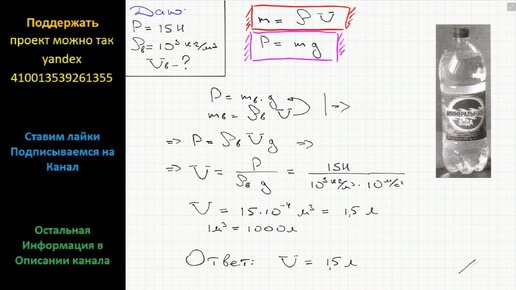 Поддержать
проект можно так
yandex
410013539261355
Ставим лайки
Подписываемся на
Канал
Остальная
Информация в
Описании канала
Дано:
P = 15Н
ρв = 10³ кг/м³
Vв - ?
m = ρ V
P = mg
P = mв · g
mв = ρв V
| =>
=> P = ρв V g =>
=> V = P / (ρв g) = 15Н / (10³ кг/м³ · 10 м/с²)
V = 15·10⁻⁴ м³ = 1,5 л
1м³ = 1000л
Ответ: V = 1,5 л
МИНЕРАЛЬНАЯ
ВОДА